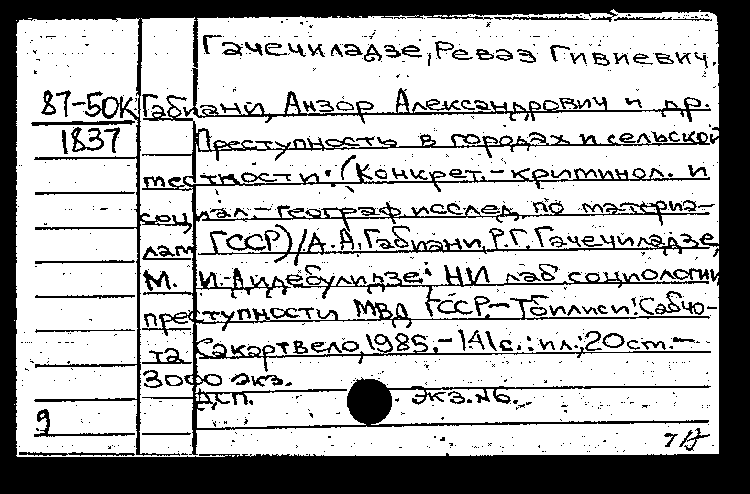 Гачечиладзе, Реваз Гивиевич.
87-50К Габиани, Анзор Александрович и др.
1837 Преступность в городах и сельской
местности: (Конкрет.-криминол. и
социал.-географ. исслед. по материа-
лам ГССР)/А.А.Габиани, Р.Г.Гачечиладзе,
М. И. Дидебулидзе; НИ лаб. социологии
преступности МВД ГССР.- Тбилиси: Сабчо-
та Сакартвело, 1985.- 141с.: ил.; 20 см.-
3000 экз.
ДСП. Экз.№6.
9